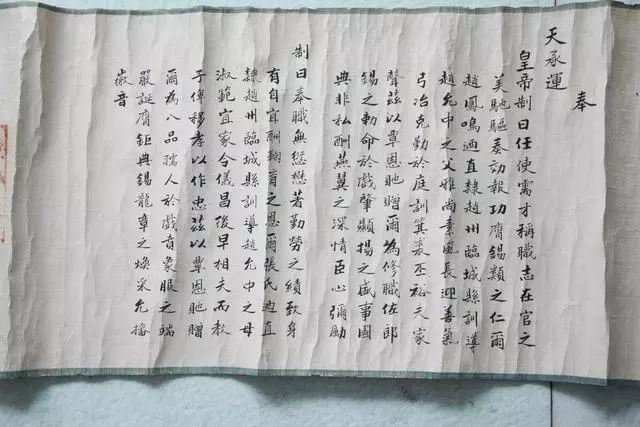 奉
天承運
皇帝制曰任使需才稱職志在官之
美馳驅奏効報功膺錫類之仁爾
趙鳳鳴廼直隸趙州臨城縣訓導
趙允中之父雅尚素風長迎善氣
弓冶克勤於庭訓箕裘丕裕夫家
聲茲以覃恩貤贈爾為修職佐郎
錫之勅命於戲肇顯揚之盛事國
典非私酬燕翼之深情臣心彌勵
制曰奉職無愆懋著勤勞之績致身
有自宜酬鞠育之恩爾張氏廼直
隸趙州臨城縣訓導趙允中之母
淑範宜家令儀昌後早相夫而教
子俾移孝以作忠茲以覃恩貤贈
爾為八品孺人於戲賁象服之端
嚴誕膺鉅典錫龍章之煥采允播
徽音